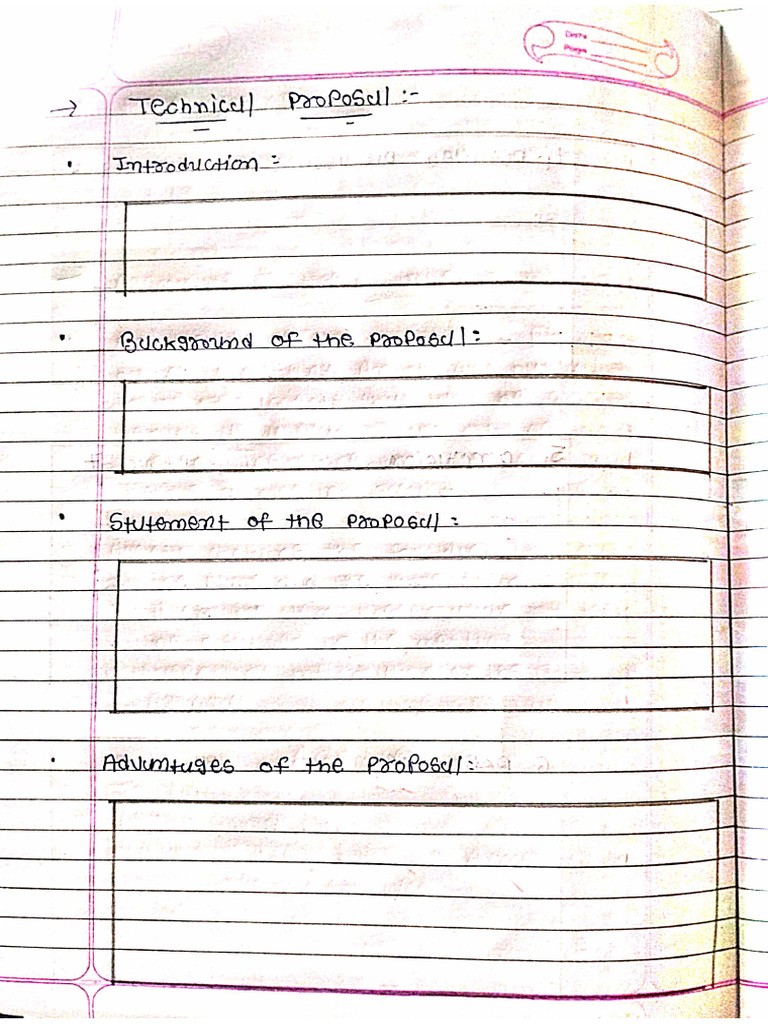 Date
Page
→ Technical Proposal :-
• Introduction :
• Background of the Proposal :
• Statement of the Proposal :
• Advantages of the Proposal :